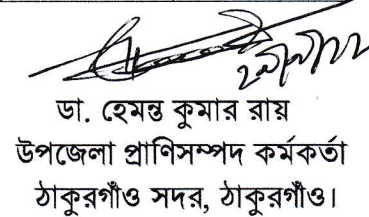 ডা. হেমন্ত কুমার রায়
উপজেলা প্রাণিসম্পদ কর্মকর্তা
ঠাকুরগাঁও সদর, ঠাকুরগাঁও।